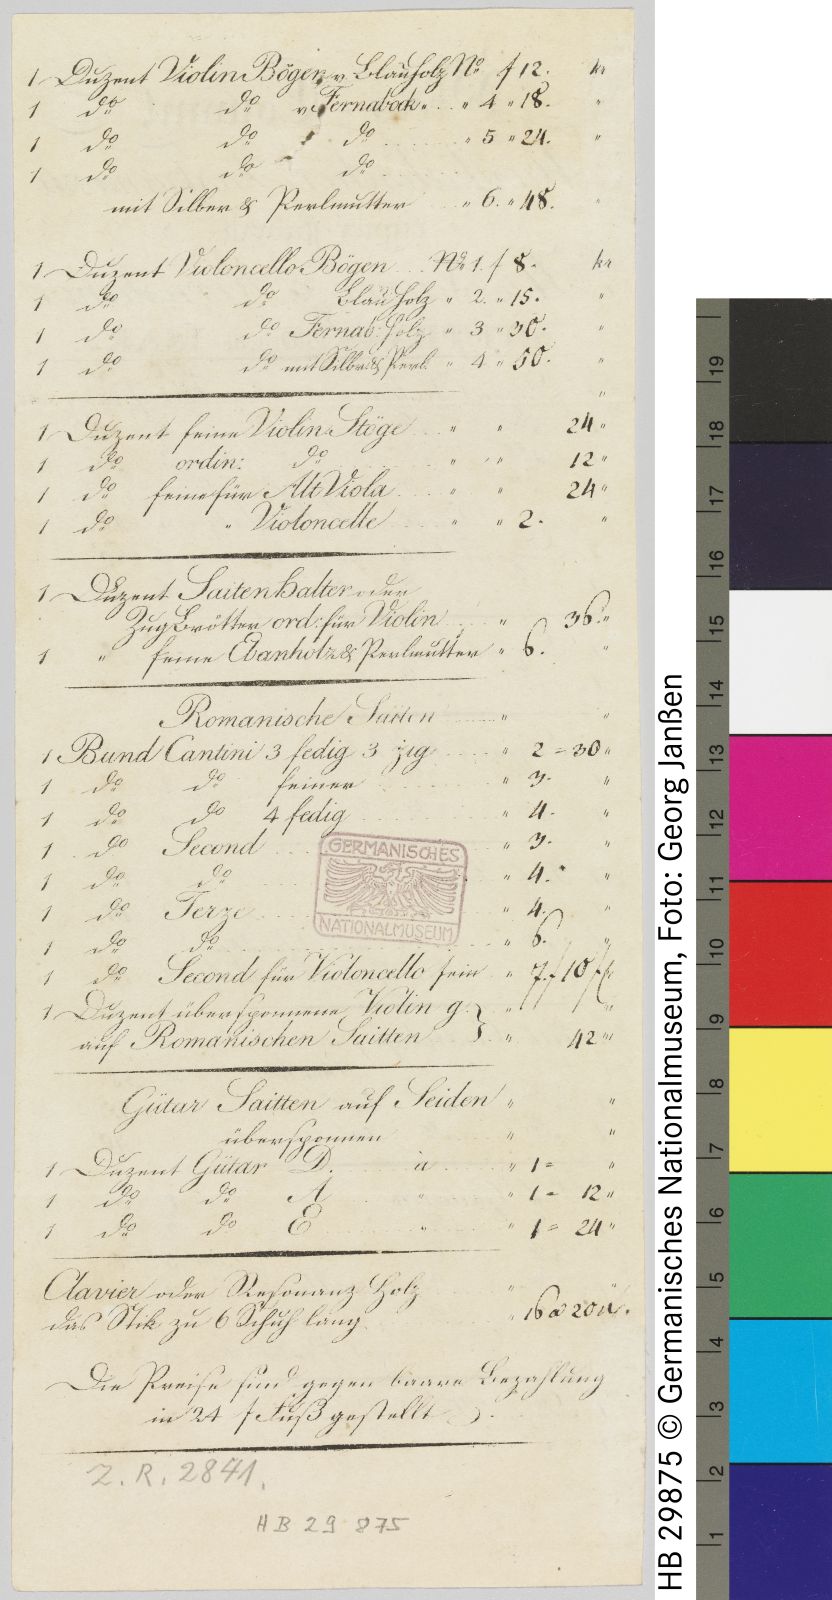 1 Duzent Violin Bögen v Blauholz No f 12. kr
1 do do v Fernabock " 4 " 18. "
1 do do do " 5 " 24. "
1 do do do
mit Silber & Perlmutter " 6. " 48. "
1 Duzent Violoncello Bögen No 1. f 8. kr
1 do do Blau Holz " 2. " 15. "
1 do do Fernab: Holz " 3 " 30. "
1 do do mit Silbr & Perl. " 4 " 50. "
"
1 Duzent feine Violin Stöge " " 24 "
1 do ordin: do " " 12 "
1 do feine für Alt Viola " " 24 "
1 do " Violoncelle " " 2. "
1 Duzent Saitenhalter oder
Zug Brötter ord: für Violin " 36. "
1 " feine Ebanholz & Perlmutter " 6. "
Romanische Saiten " "
1 Bund Cantini 3 fedig 3 zig " 2 = 30 "
1 do do feiner " 3. "
1 do do 4 fedig " 4. "
1 do Second " 3. "
1 do do " 4. "
1 do Terze " 4. "
1 do do " 6. "
1 do Second für Violoncello fein " 7. f 10 f
1 Duzent übersponnene Violin g. } " "
auf Romanischen Saitten } " 42 "
Gütar Saitten auf Seiden " "
übersponnen " "
1 Duzent Gütar D. à " 1 = "
1 do do A " " 1 = 12 "
1 do do E " " 1 = 24 "
Clavier oder Resonanz Holz "
das Stck zu 6 Schuh lang " 16 a 20
Die Preise sind gegen baare Bezahlung
in 24 f Fuß gestellt
Z. R. 2841.
HB 29 875
GERMANISCHES
NATIONALMUSEUM
HB 29875 © Germanisches Nationalmuseum, Foto: Georg Janßen
19
18
17
16
15
14
13
12
11
10
9
8
7
6
5
4
3
2
1